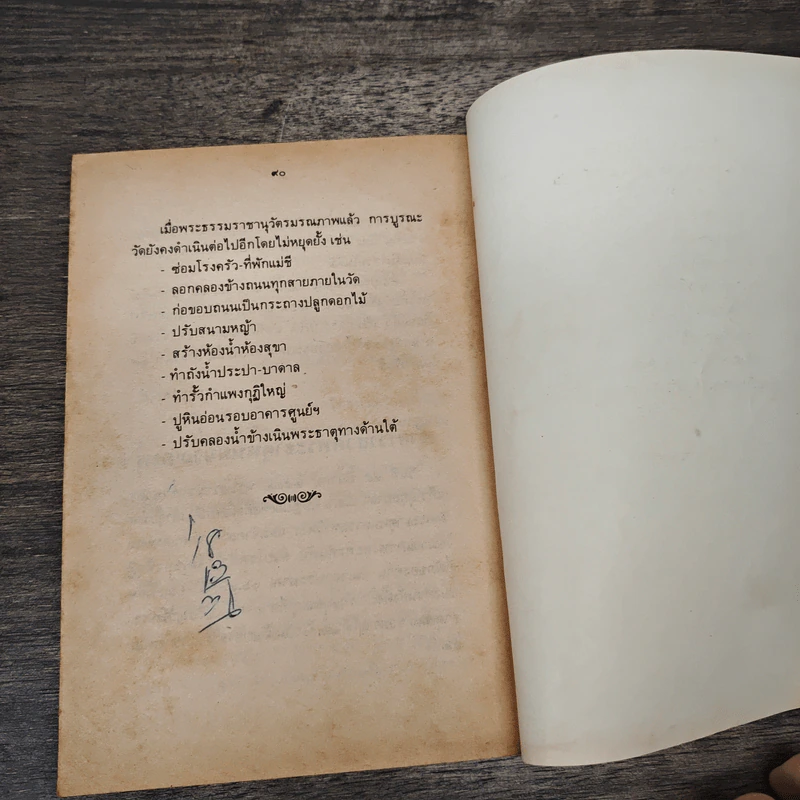 ๙๐
เมื่อพระธรรมราชานุวัตรมรณภาพแล้ว การบูรณะ
วัดยังคงดำเนินต่อไปอีกโดยไม่หยุดยั้ง เช่น
- ซ่อมโรงครัว-ที่พักแม่ชี
- ลอกคลองข้างถนนทุกสายภายในวัด
- ก่อขอบถนนเป็นกระถางปลูกดอกไม้
- ปรับสนามหญ้า
- สร้างห้องน้ำห้องสุขา
- ทำถังน้ำประปา-บาดาล
- ทำรั้วกำแพงกุฏิใหญ่
- ปูหินอ่อนรอบอาคารศูนย์ฯ
- ปรับคลองน้ำข้างเนินพระธาตุทางด้านใต้